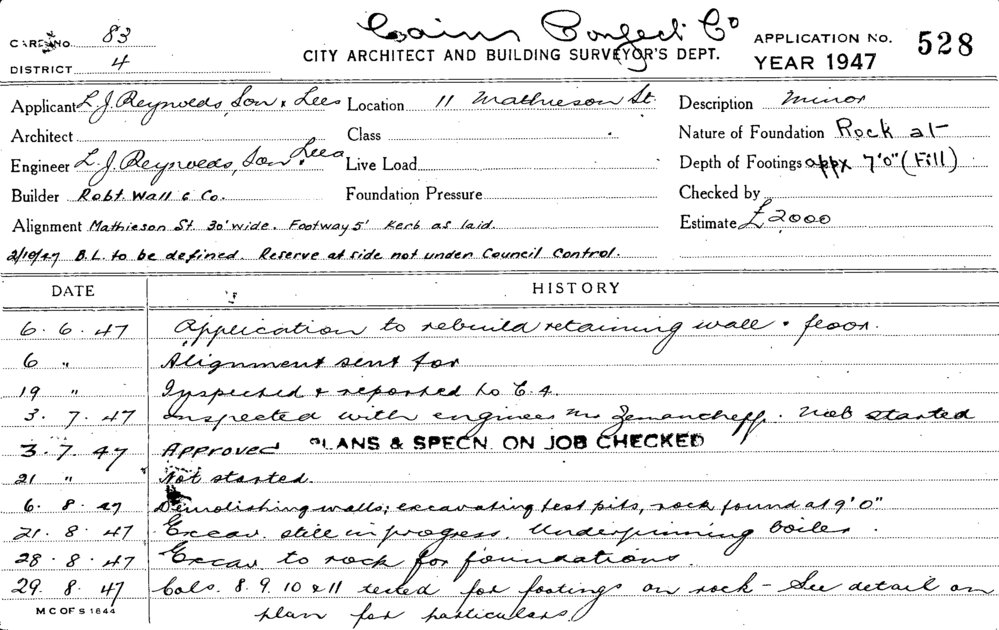 Cains Confect. Co
CARD NO. 83
CITY ARCHITECT AND BUILDING SURVEYOR'S DEPT.
APPLICATION NO. 528
DISTRICT 4
YEAR 1947
Applicant L. J. Reynolds, Son & Lees Location 11 Mathieson St. Description Minor
Architect Class Nature of Foundation Rock at
Engineer L. J. Reynolds, Son, Lees Live Load Depth of Footings appx 7'0" (Fill)
Builder Robt. Wall & Co. Foundation Pressure Checked by
Estimate £2000
Alignment Mathieson St. 30' wide. Footway 5' Kerb as laid.
2/10/47 B.L. to be defined. Reserve at side not under Council Control.
DATE HISTORY
6. 6. 47 Application to rebuild retaining wall & floor.
6 " Alignment sent for
19 " Inspected & reported to C.A.
3. 7. 47 Inspected with engineer Mr Zemancheff. Not started
3. 7. 47 Approved PLANS & SPECN. ON JOB CHECKED
21 " Not started.
6. 8. 47 Demolishing walls; excavating test pits, rock found at 9' 0"
21. 8. 47 Excav. still in progress. Underpinning boiler.
28. 8. 47 Excav to rock for foundations.
29. 8. 47 Cols. 8. 9. 10 & 11 tested for footings on rock - See detail on
plan for particulars.
M C OF S 1844